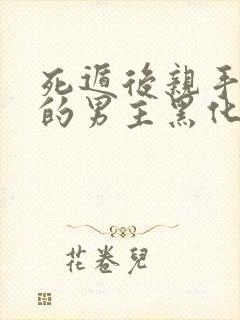 死遁後親手
的男主黑化
花卷兒